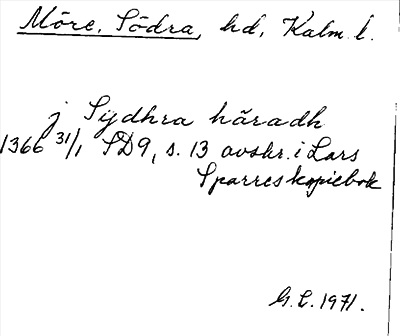 Möre, Södra, hd, Kalm. l.
j Sÿdhra häradh
1366 31/1 SD9, s. 13 avskr. i Lars
Sparres kopiebok
G. L. 1971.